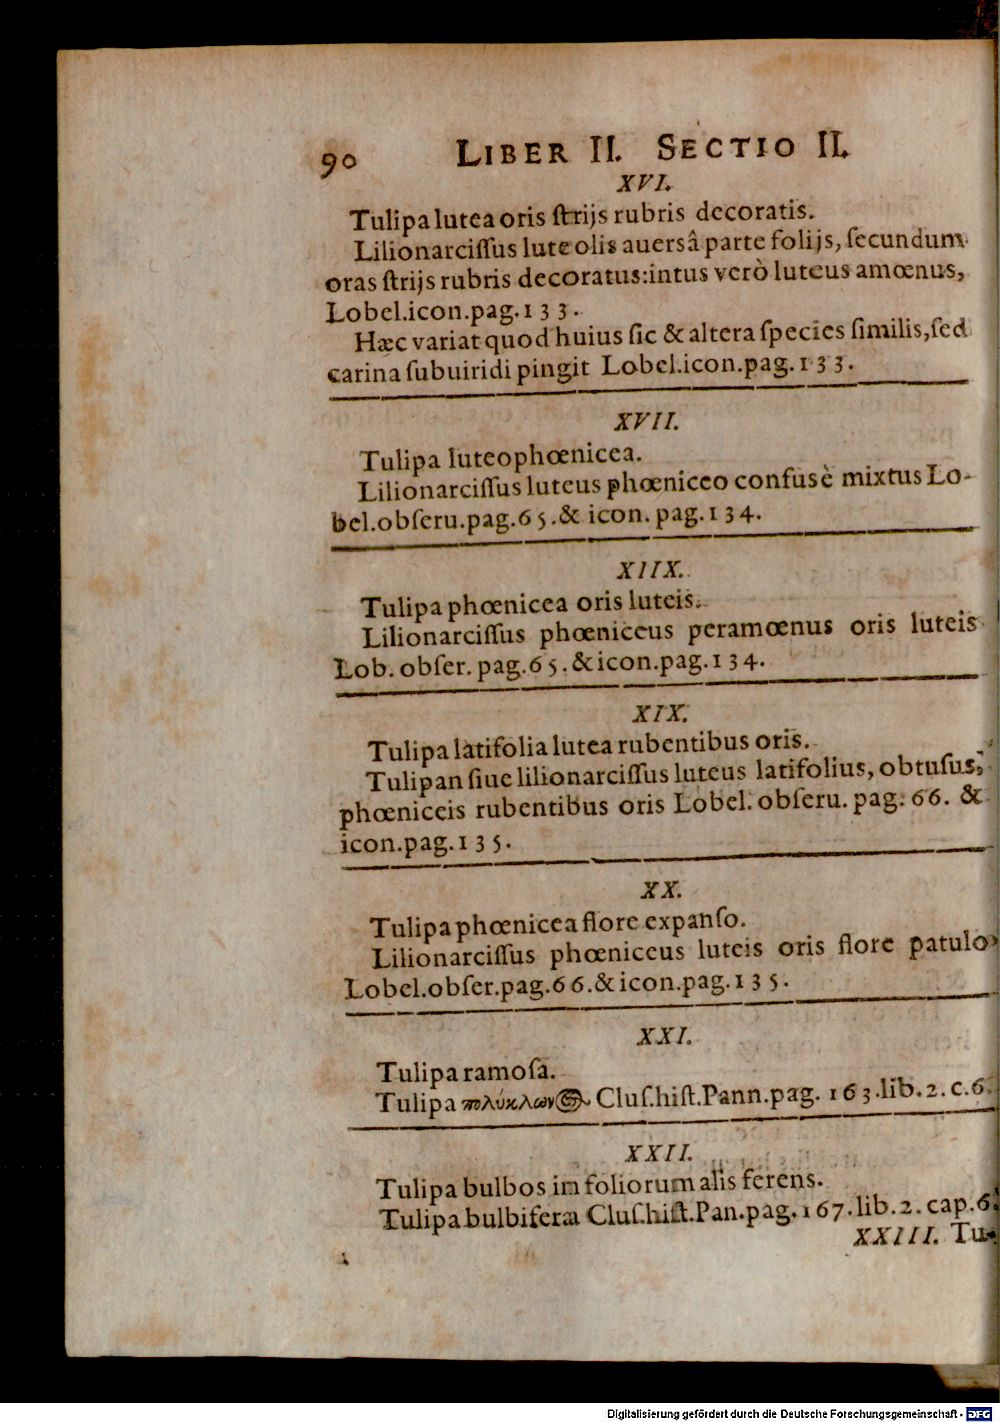 90 LIBER II. SECTIO II.
XVI.
Tulipa lutea oris ſtrijs rubris decoratis.
Lilionarciſſus luteolis auersâ parte folijs, ſecundum
oras ſtrijs rubris decoratus: intus verò luteus amœnus,
Lobel. icon. pag. 133.
Hæc variat quod huius ſic & altera ſpecies ſimilis, ſed
carina ſubuiridi pingit Lobel. icon. pag. 133.
XVII.
Tulipa luteophœnicea.
Lilionarciſſus luteus phœniceo confusè mixtus Lo-
bel. obſeru. pag. 65. & icon. pag. 134.
XIIX.
Tulipa phœnicea oris luteis.
Lilionarciſſus phœniceus peramœnus oris luteis
Lob. obſer. pag. 65. & icon. pag. 134.
XIX.
Tulipa latifolia lutea rubentibus oris.
Tulipan ſiue lilionarciſſus luteus latifolius, obtuſus,
phœniceis rubentibus oris Lobel. obſeru. pag. 66. &
icon. pag. 135.
XX.
Tulipa phœnicea flore expanſo.
Lilionarciſſus phœniceus luteis oris flore patulo
Lobel. obſer. pag. 66. & icon. pag. 135.
XXI.
Tulipa ramoſa.
Tulipa πολύκλων Cluſ. hiſt. Pann. pag. 163. lib. 2. c. 6.
XXII.
Tulipa bulbos in foliorum alis ferens.
Tulipa bulbifera Cluſ. hiſt. Pan. pag. 167. lib. 2. cap. 6.
XXIII. Tu-
Digitalisierung gefördert durch die Deutsche Forschungsgemeinschaft - DFG